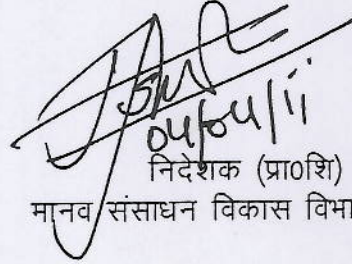 04/04/11
निदेशक (प्रा०शि)
मानव संसाधन विकास विभा